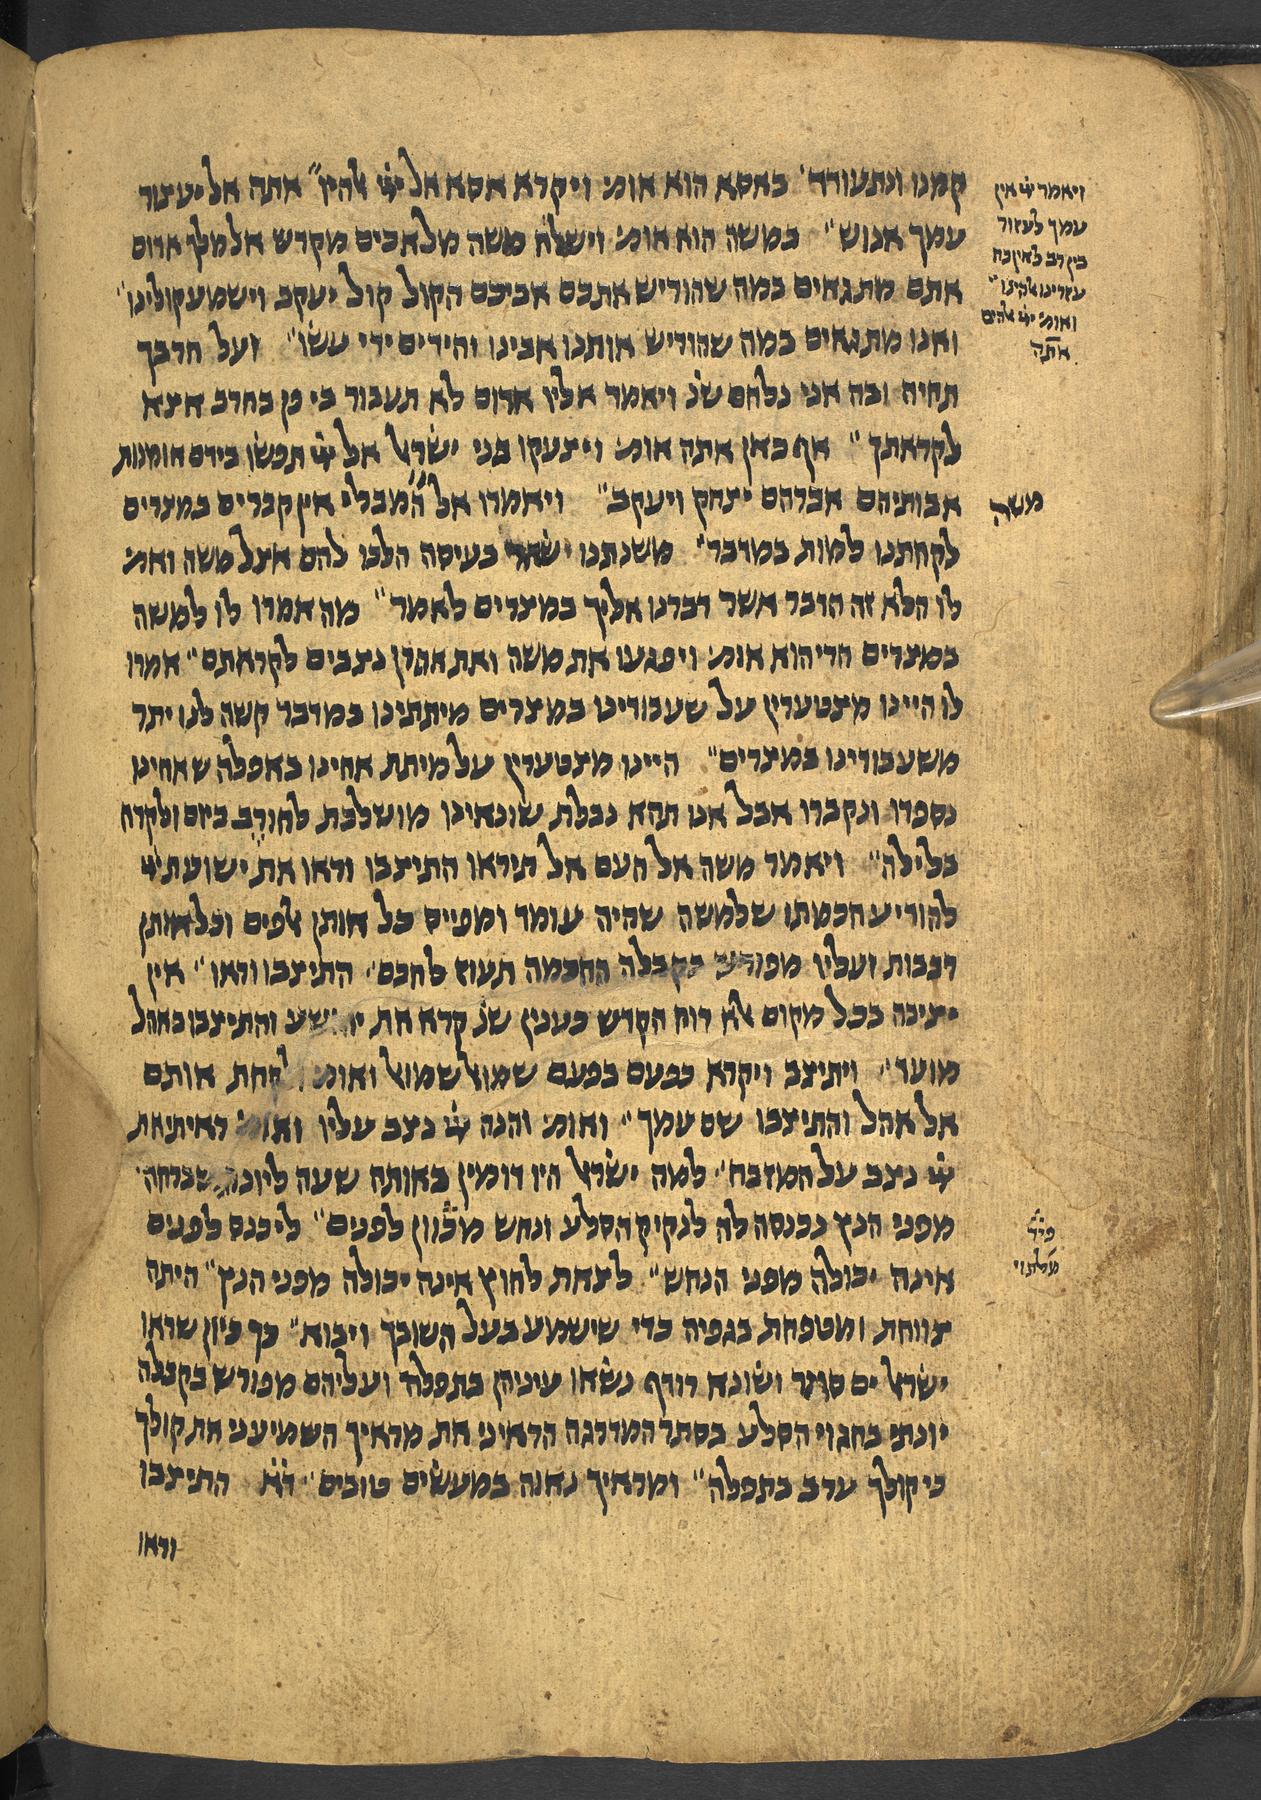 קמנו ונתעודד' באסא הוא אומ' ויקרא אסא אל ייי אלהיו" אתה אל יעצור
עמך אנוש" במשה הוא אומ' וישלח משה מלאכים מקדש אל מלך אדום
אתם מתגאים במה שהוריש אתכם אביכם הקול קול יעקב וישמע קולינו"
ואנו מתגאים במה שהוריש אותנו אבינו והידים ידי עשו" ועל חרבך
תחיה ובה אני נלחם שנ' ויאמר אליו אדום לא תעבור בי פן בחרב אצא
לקראתך" אף כאן אתה אומ' ויצעקו בני ישראל אל ייי תפשו בידם אומנות
אבותיהם אברהם יצחק ויעקב" ויאמרו אל המבלי אין קברים במצרים
לקחתנו למות במדבר" משנתנו שאור בעיסה הלכו להם אצל משה ואמ'
לו הלא זה הדבר אשר דברנו אליך במצרים לאמר" מה אמרו לו למשה
במצרים הרי הוא אומ' ויפגעו את משה ואת אהרן נצבים לקראתם" אמרו
לו היינו מצטערין על שעבודינו במצרים מיתתינו במדבר קשה לנו יתר
משעבודינו במצרים" היינו מצטערין על מיתת אחינו באפלה שאחינו
נספדו ונקברו אבל אנו תהא נבלת שונאינו מושלכת לחורב ביום ולקרח
בלילה" ויאמר משה אל העם אל תיראו התיצבו וראו את ישועת ייי
להודיע חכמתו שלמשה שהיה עומד ומפייס כל אותן אלפים וכל אותן
רבבות ועליו מפורש בקבלה החכמה תעוז לחכם" התיצבו וראו" אין
יציבה בכל מקום אלא רוח הקדש כענין שנ' קרא את יהושע והתיצבו באהל
מועד" ויתיצב ויקרא כפעם בפעם שמואל שמואל ואומ' לקחת אותם
אל אהל והתיצבו שם עמך" ואומ' והנה ייי נצב עליו ואומ' ראיתי את
ייי נצב על המזבח" למה ישראל היו דומין באותה שעה ליונה שברחה
מפני הנץ נכנסה לה לנקיק הסלע ונחש מכוון לפנים" ליכנס לפנים
אינה יכולה מפני הנחש" לצאת לחוץ אינה יכולה מפני הנץ" היתה
צווחת ומטפחת בגפיה כדי שישמע בעל השובך ויבוא" כך כיון שראו
ישראל ים סוגר ושונא רודף נשאו עיניהן בתפלה ועליהם מפורש בקבלה
יונתי בחגוי הסלע בסתר המדרגה הראיני את מראיך השמיעני את קולך
כי קולך ערב בתפלה" ומראיך נאוה במעשים טובים" ד"א התיצבו
וראו
ויאמר ייי אין
עמך לעזור
בין רב לאין כח
עזרינו אלהינו"
ואומ' ייי אלהים
אתה
משה